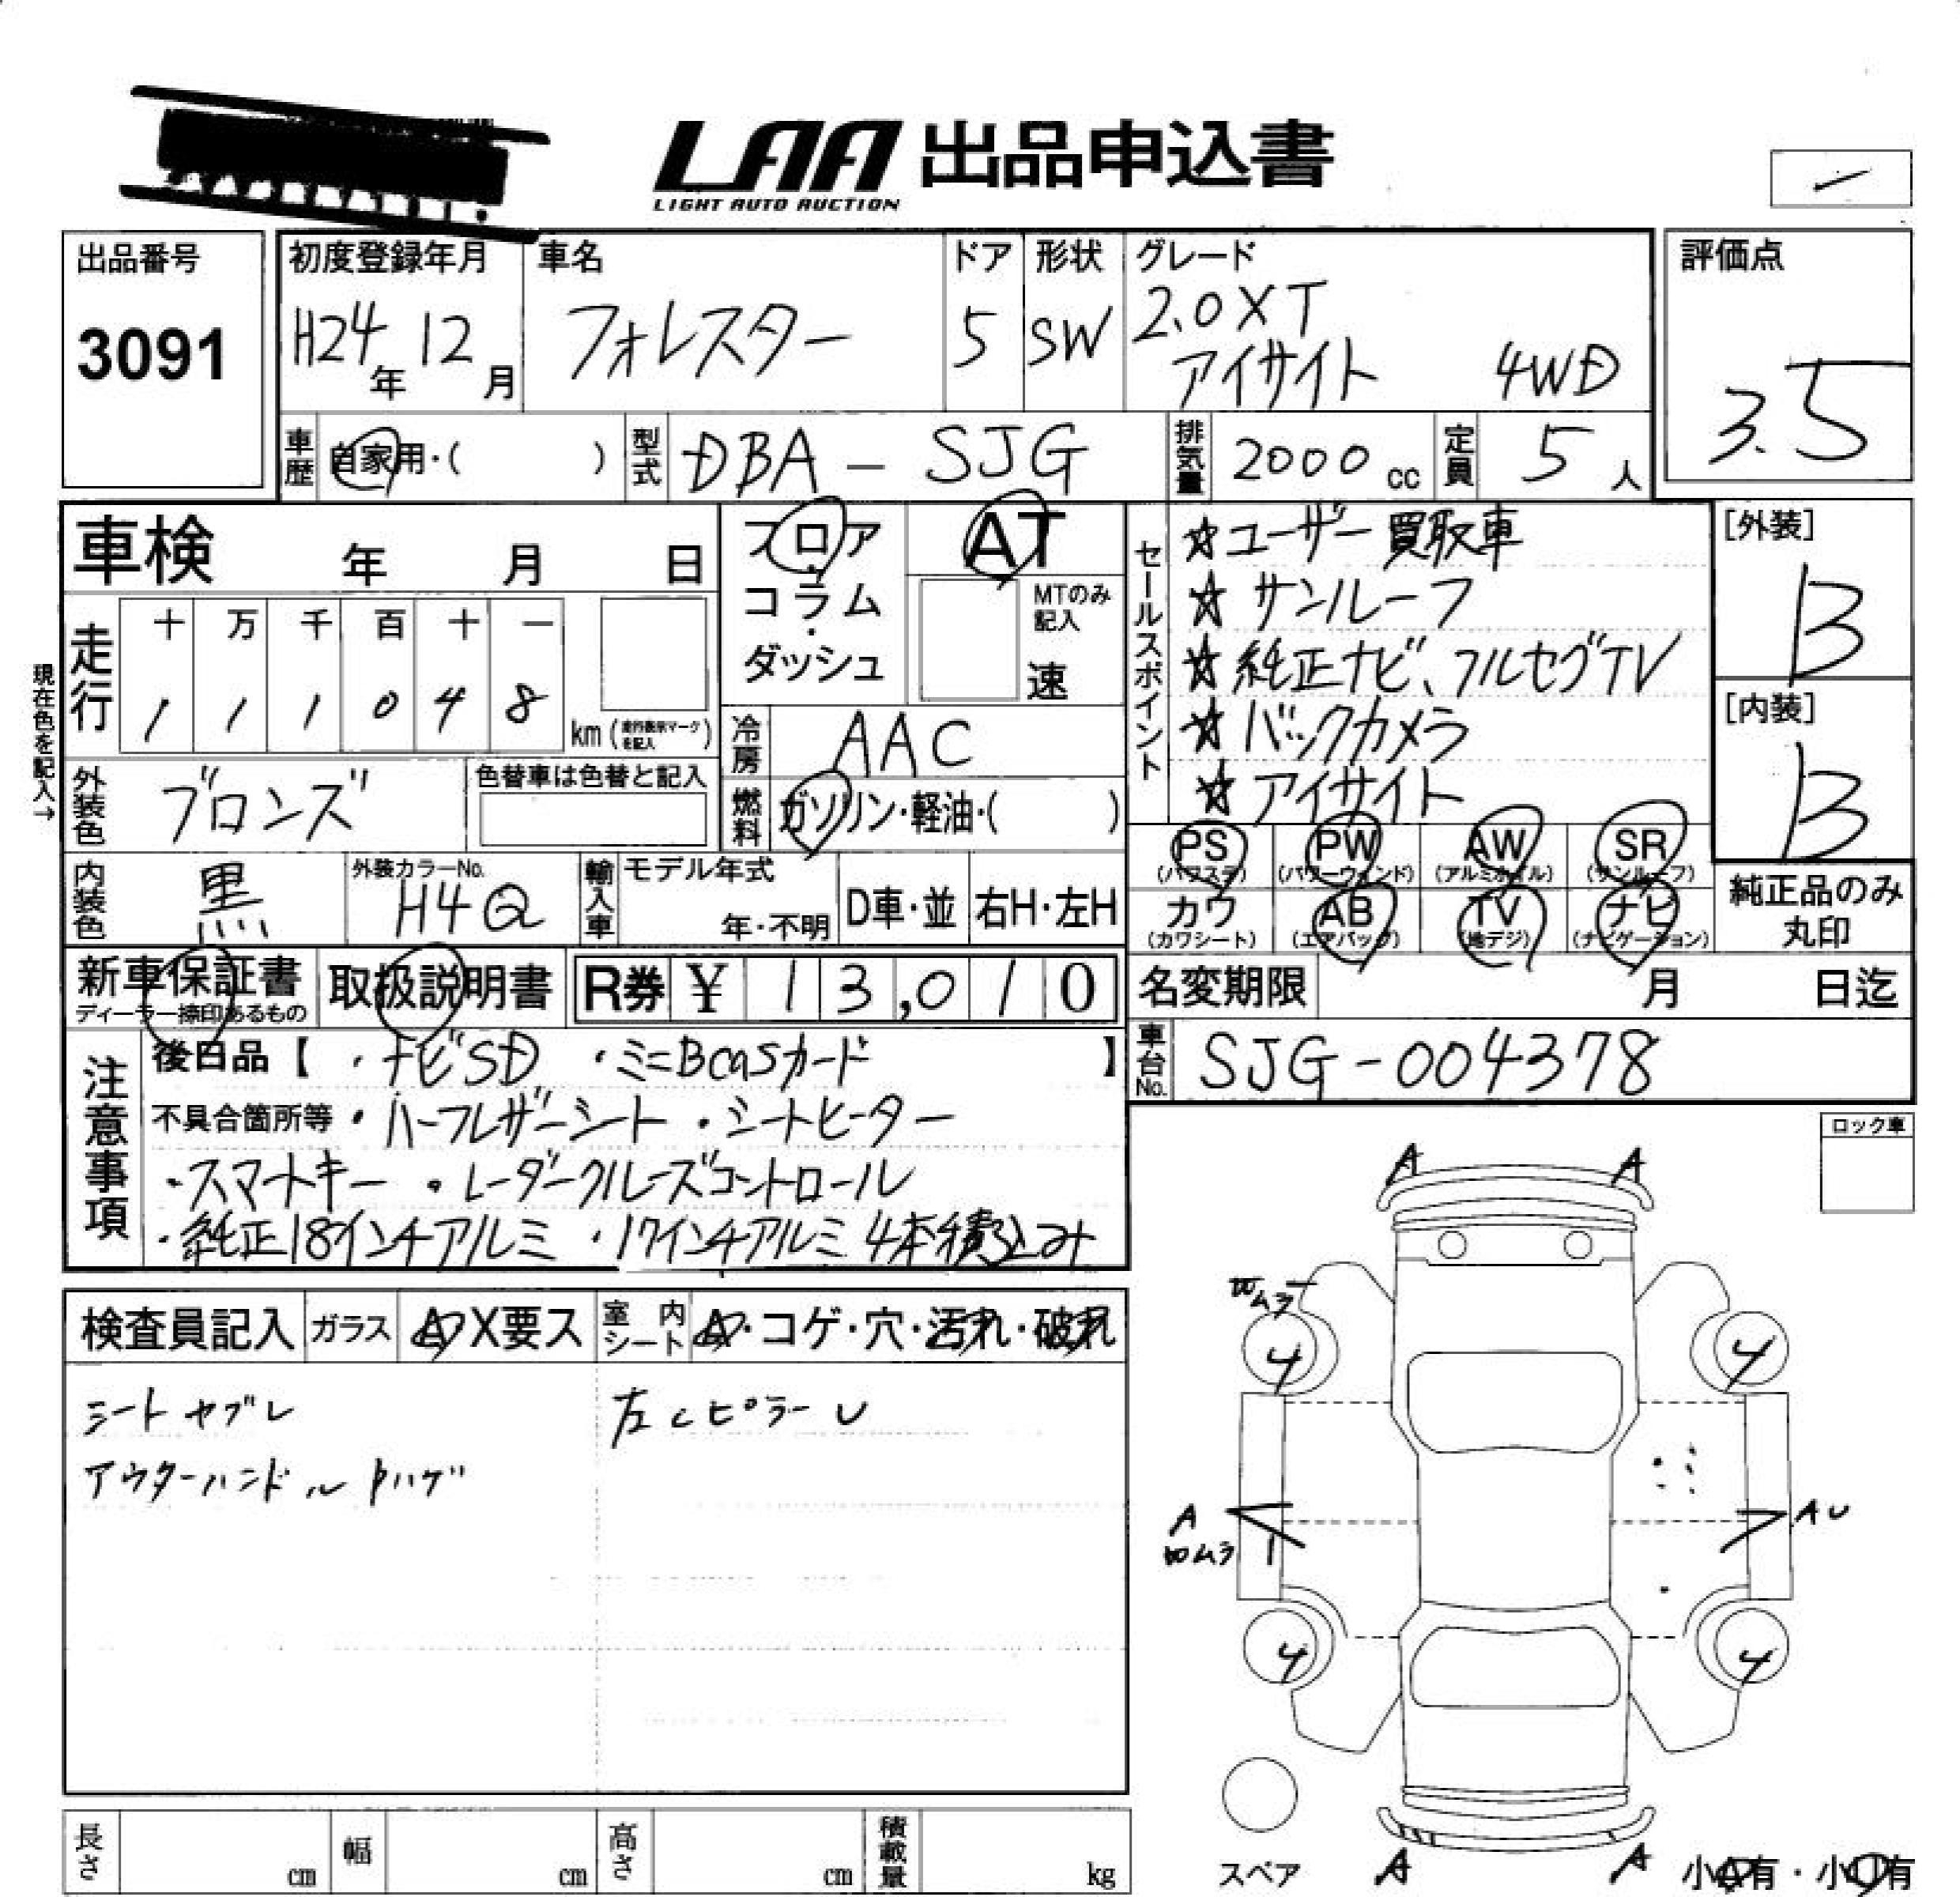 LAA 出品申込書
LIGHT AUTO AUCTION
出品番号
3091
初度登録年月
H24年12月
車名
フォレスター
ドア
5
形状
SW
グレード
2.0XT
アイサイト 4WD
評価点
3.5
車歴
自家用・( )
型式
DBA - SJG
排気量
2000cc
定員
5人
車検 年 月 日
フロア・コラム・ダッシュ
AT
MTのみ記入
速
現在色を記入→
走行
十 万 千 百 十 一
1 1 1 0 4 8
km(走行表示マークを記入)
冷房
AAC
外装色
ブロンズ
色替車は色替と記入
燃料
ガソリン・軽油・( )
セールスポイント
☆ユーザー買取車
☆サンルーフ
☆純正ナビ、フルセグTV
☆バックカメラ
☆アイサイト
[外装]
B
[内装]
B
PS
(パワステ)
PW
(パワーウィンド)
AW
(アルミホイル)
SR
(サンルーフ)
カワ
(カワシート)
AB
(エアバック)
TV
(地デジ)
ナビ
(ナビゲーション)
純正品のみ
丸印
内装色
黒
外装カラーNo.
H4Q
輸入車
モデル年式
年・不明
D車・並
右H・左H
新車保証書
ディーラー捺印あるもの
取扱説明書
R券 ¥ 13,010
名変期限 月 日迄
車台No.
SJG-004378
注意事項
後日品【 ・ナビSD ・ミニBcasカード 】
不具合箇所等 ・ハーフレザーシート ・シートヒーター
・スマートキー ・レーダークルーズコントロール
・純正18インチアルミ ・17インチアルミ4本積込み
ロック車
検査員記入
ガラス
A・X要ス
室内シート
A・コゲ・穴・汚れ・破れ
シートヤブレ
左Cピラー U
アウターハンドルトハゲ
A A
凹ムラ
4 4
A
凹ムラ
AU
4 4
スペア
A A
小A有・小U有
長さ cm
幅 cm
高さ cm
積載量 kg